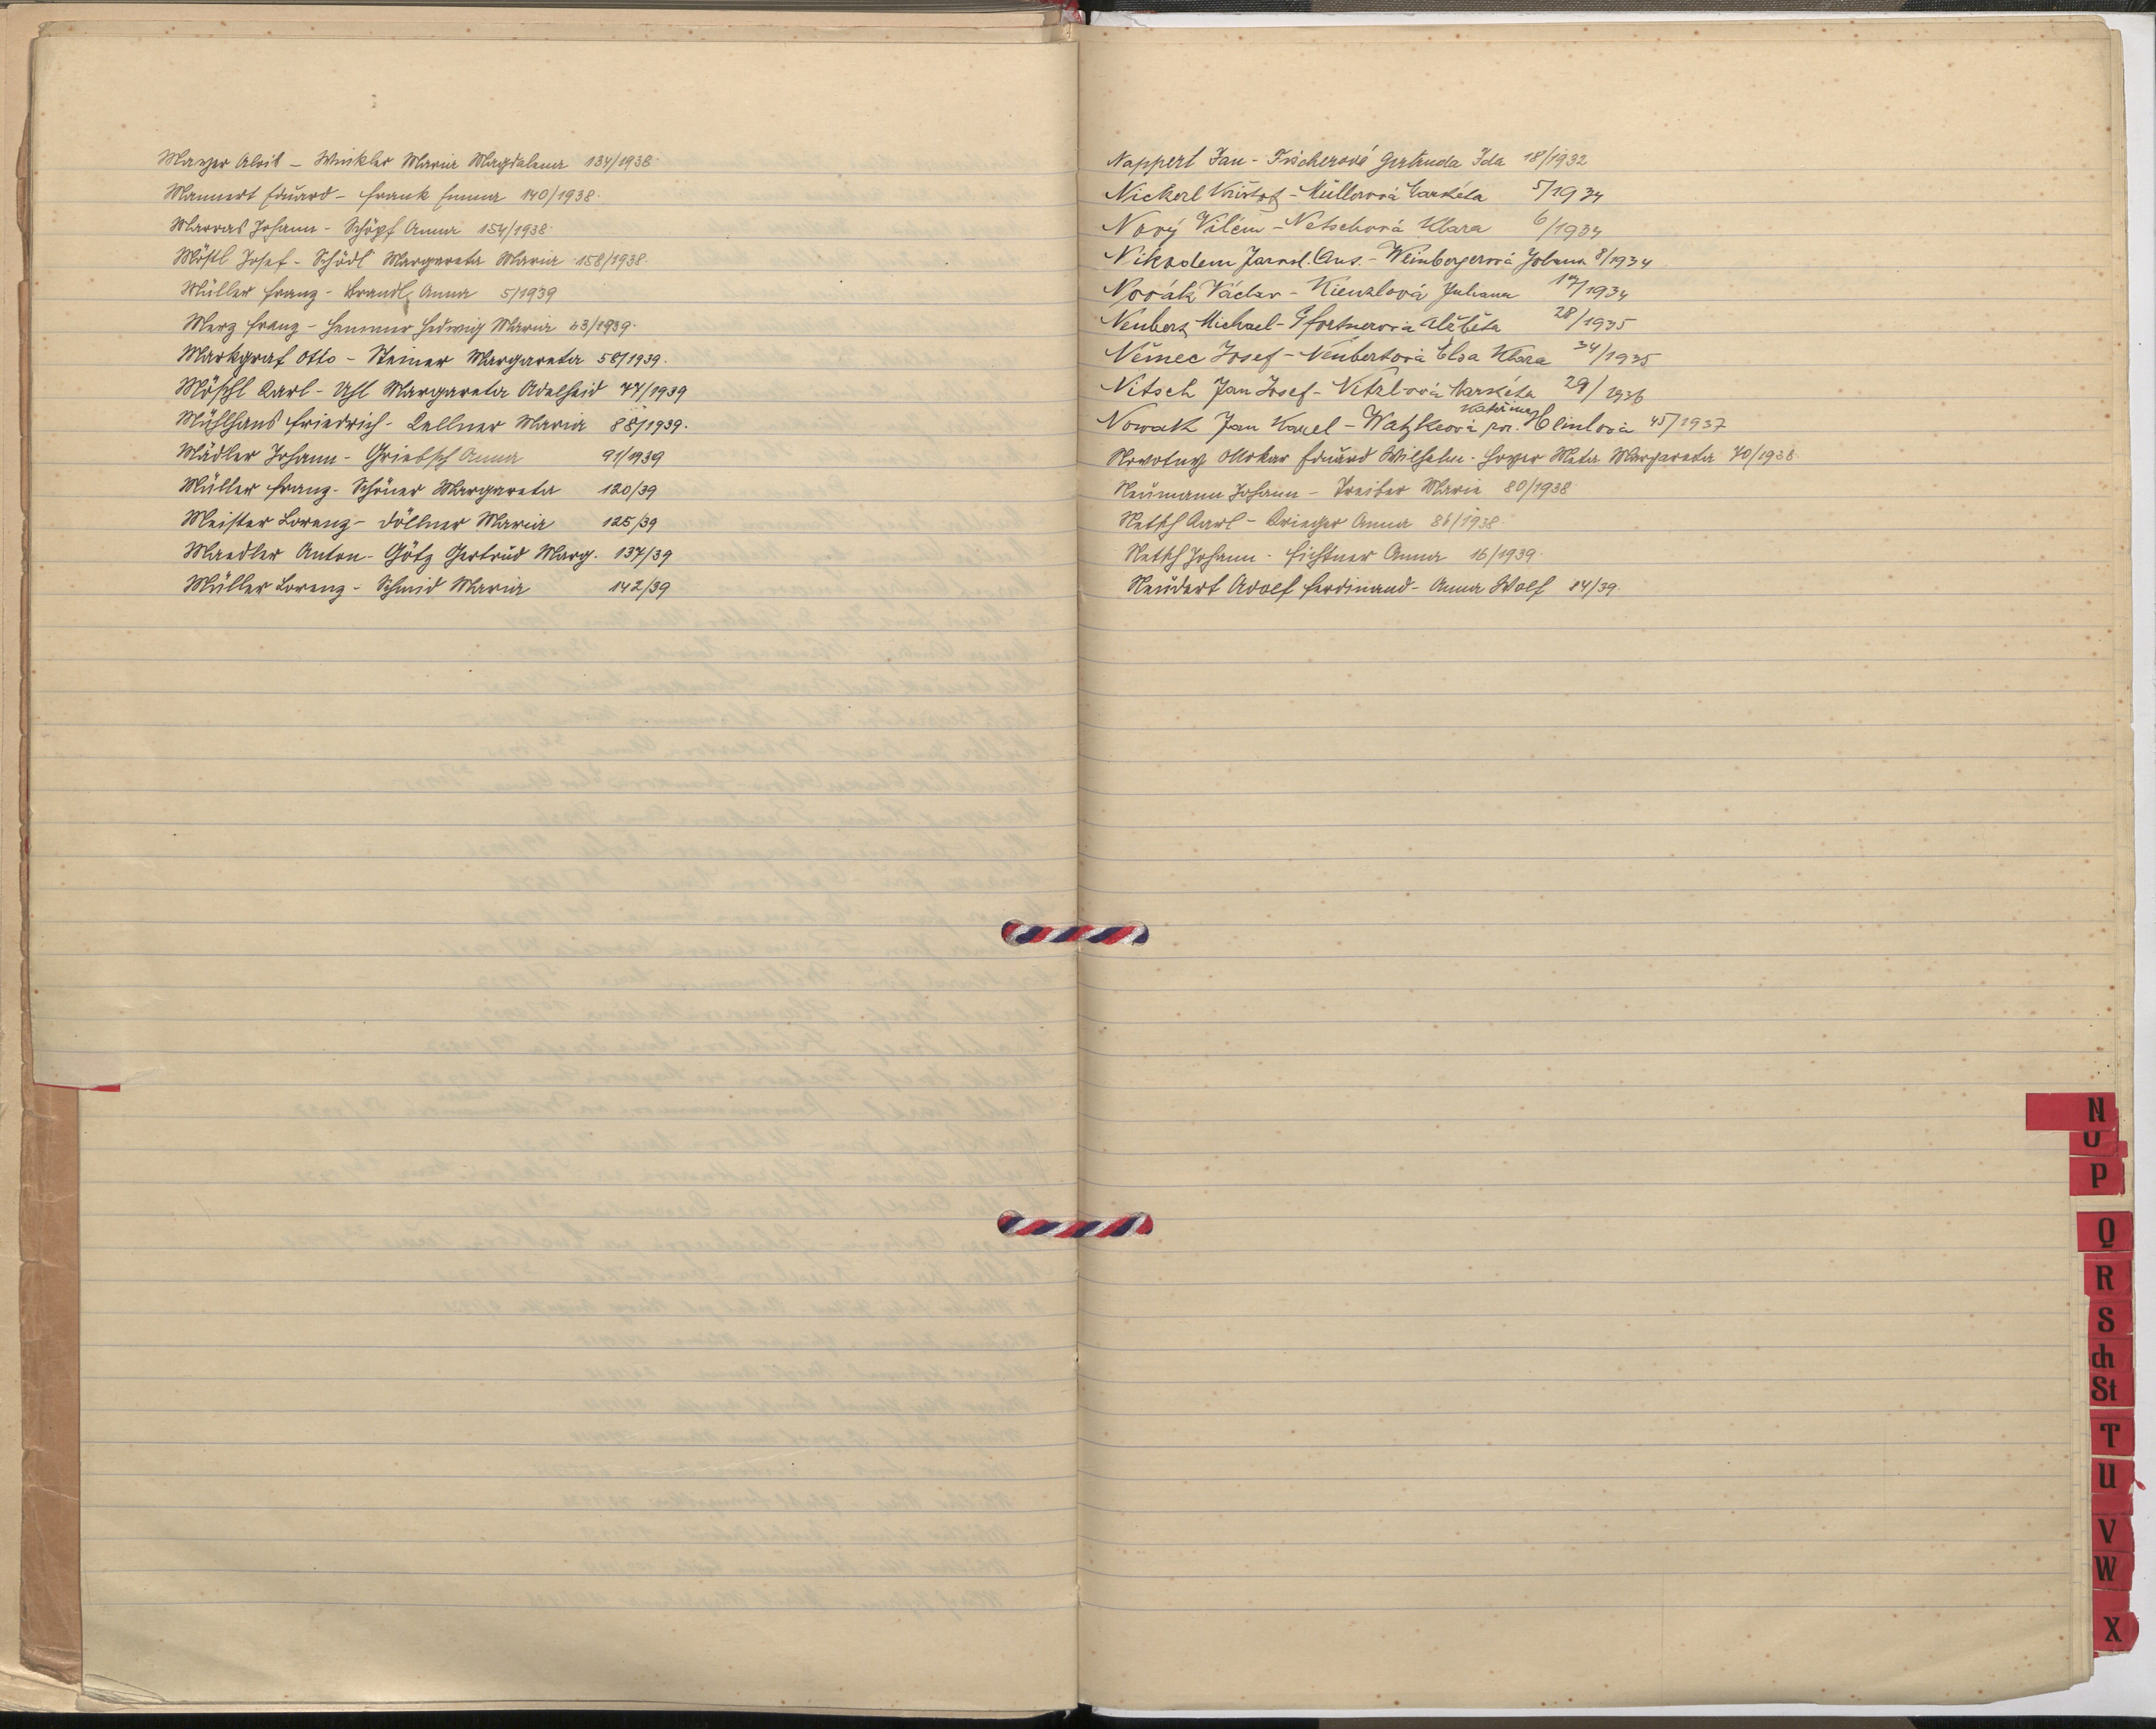 Mayer Alois - Winkler Maria Magdalena 134/1938.
Mannert Eduard - Frank Emma 140/1938.
Marras Johann - Schöpf Anna 154/1938.
Möstl Josef - Schödl Margareta Maria 158/1938.
Müller Franz - Brandl Anna 5/1939
Merz Franz - Hammer Hedwig Maria 23/1939.
Markgraf Otto - Steiner Margareta 58/1939.
Möschl Karl - Uhl Margareta Adelheid 77/1939
Mühlhans Friedrich - Kellner Maria 88/1939.
Mädler Johann - Griebsch Anna 91/1939
Müller Franz - Schöner Margareta 120/39
Meister Lorenz - Döllner Maria 125/39
Maedler Anton - Götz Gertrud Marg. 137/39
Müller Lorenz - Schmid Maria 142/39
Nappert Jan - Fischerová Gertruda Ida 18/1932
Nickerl Krištof - Müllerová Markéta 5/1934
Nový Vilém - Netschová Klara 6/1934
Nikodem Jarosl. Ant. - Weinbergerová Johana 8/1934
Novák Václav - Kienzlová Juliana 17/1934
Neubert Michael - Pfortnerová Alžběta 28/1935
Němec Josef - Neubertová Elsa Klara 34/1935
Nitsch Jan Josef - Vitzlová Markéta 29/1936
Nowak Jan Karel - Watzkeová roz. Heinlová Kateřina 45/1937
Novotny Ottokar Eduard Wilhelm - Hoyer Meta Margareta 70/1938
Neumann Johann - Treiber Maria 80/1938
Netsch Karl - Krieger Anna 86/1938.
Netsch Johann - Fichtner Anna 16/1939.
Neudert Adolf Ferdinand - Anna Wolf 84/39.
N
O
P
Q
R
S
ch
St
T
U
V
W
X